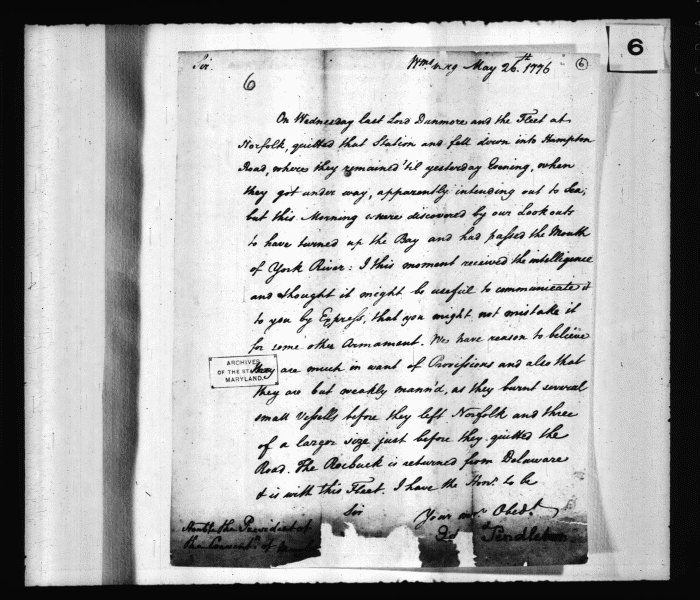 6
Sir
Wmsburg May 26.th 1776
6
6
On Wednesday last Lord Dunmore and the Fleet at
Norfolk, quitted that Station and fell down into Hampton
Road, where they remained 'til yesterday Evening, when
they got under way, apparently intending out to Sea,
but this Morning were discovered by our Look outs
to have turned up the Bay and had passed the Mouth
of York River: I this moment received the intelligence
and thought it might be useful to communicate it
to you by Express, that you might not mistake it
for some other Armament. We have reason to believe
they are much in want of Provisions and also that
they are but weakly mann'd, as they burnt several
small Vessells before they left Norfolk and three
of a larger size just before they quitted the
Road. The Roebuck is returned from Delaware
& is with this Fleet. I have the Honr. to be
Sir
Your mo. Obedt.
Edd Pendleton
Honble the President of
the Convent. of
ARCHIVES
OF THE STATE
MARYLAND